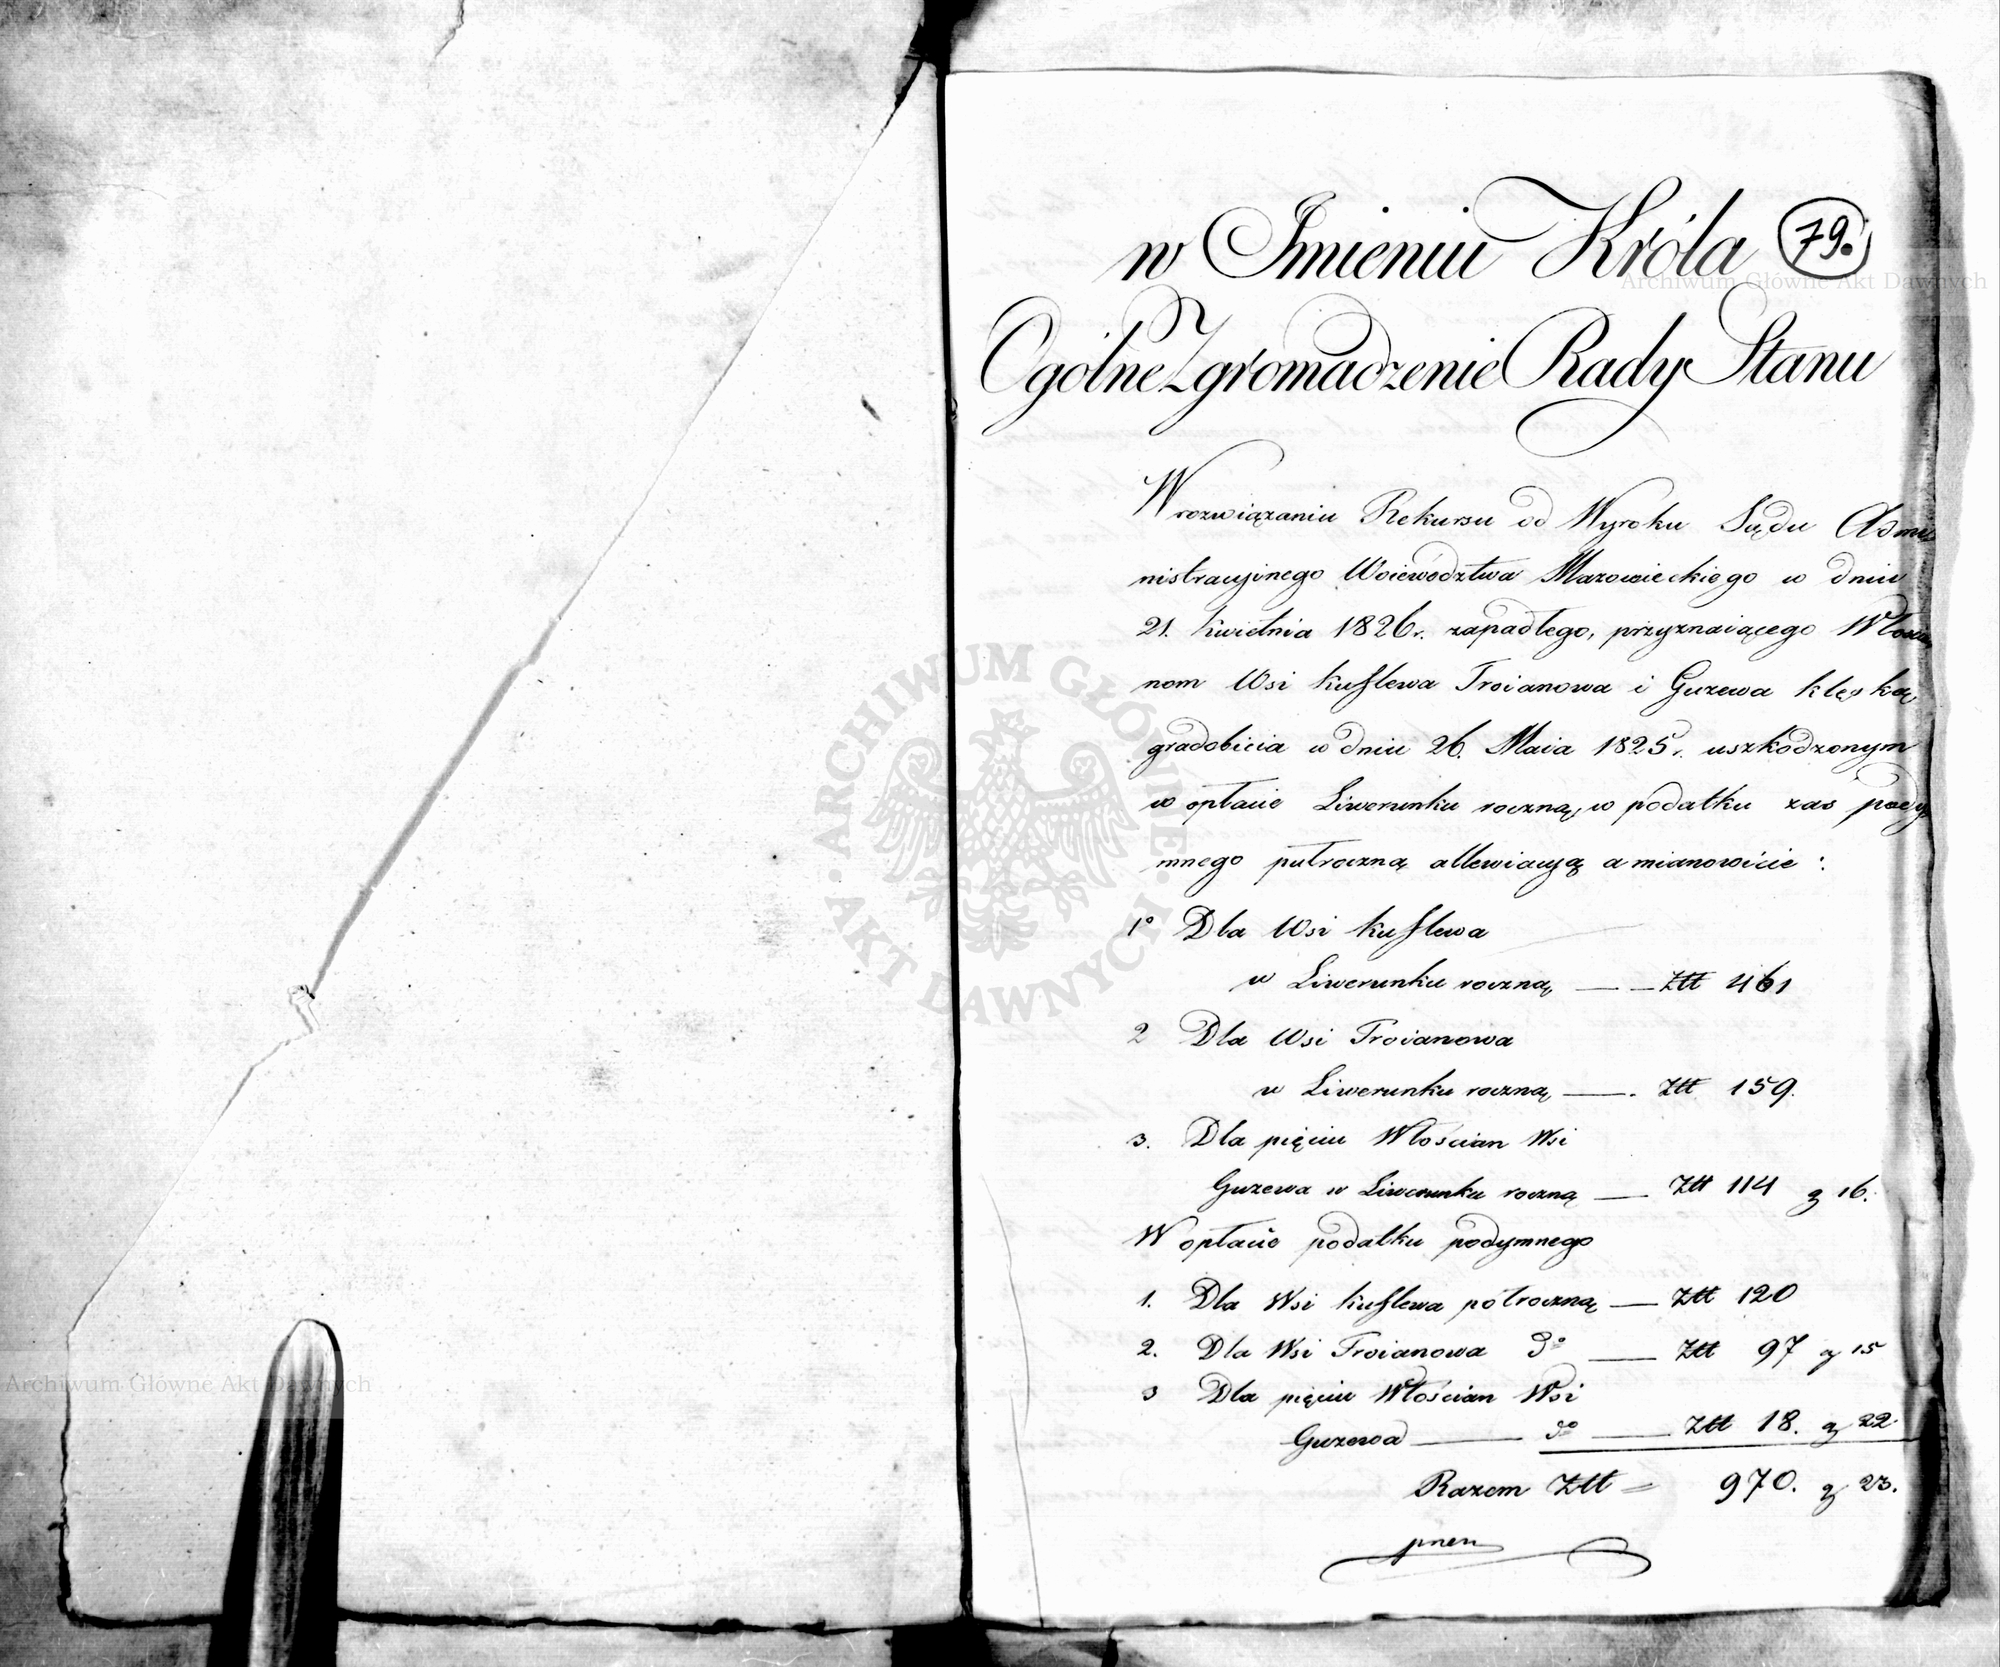 79.
w Imieniu Króla
Ogólne Zgromadzenie Rady Stanu
W rozwiązaniu Rekursu od Wyroku Sądu Admi
nistracyjnego Woiewództwa Mazowieckiego w dniu
21. kwietnia 1826r. zapadłego, przyznaiącego Włoscia
nom Wsi kuflewa Troianowa i Guzewa klęską
gradobicia w dniu 26. Maia 1825r. uszkodzonym
w opłacie Liwerunku roczną, w podatku zas pody
mnego pułroczną allewiacyą a mianowicie :
1º Dla Wsi kuflewa
w Liwerunku roczną — — Złł 461
2 Dla Wsi Troianowa
w Liwerunku roczną — . Złł 159.
3. Dla pięciu Włoscian Wsi
Guzewa w Liwerunku roczną — Złł 114 g 16.
W opłacie podatku podymnego
1. Dla Wsi kuflewa półroczną — Złł 120
2. Dla Wsi Troianowa dº — Złł 97 g 15
3 Dla pięciu Włoscian Wsi
Guzewa — dº — Złł 18. g 22
Razem Złł = 970. g 23.
ARCHIWUM GŁÓWNE
AKT DAWNYCH
Archiwum Główne Akt Dawnych
Archiwum Główne Akt Dawnych